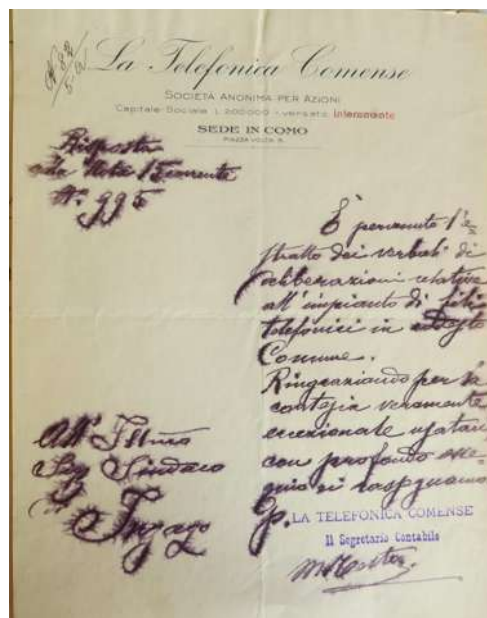 La Telefonica Comense
SOCIETÀ ANONIMA PER AZIONI
Capitale Sociale L. 200.000 - versato Interamente
SEDE IN COMO
PIAZZA VOLTA 5.
Risposta
alla Nota 15 corrente
N.º 995
È pervenuto l'e=
stratto dei verbali di
deliberazioni relative
all'impianto di fili
telefonici in codesto
Comune.
Ringraziando per la
cortesia veramente
eccezionale usataci,
con profondo osse
quio ci rassegniamo
All' Illmo
Sig Sindaco
di
Inzago
p. LA TELEFONICA COMENSE
Il Segretario Contabile